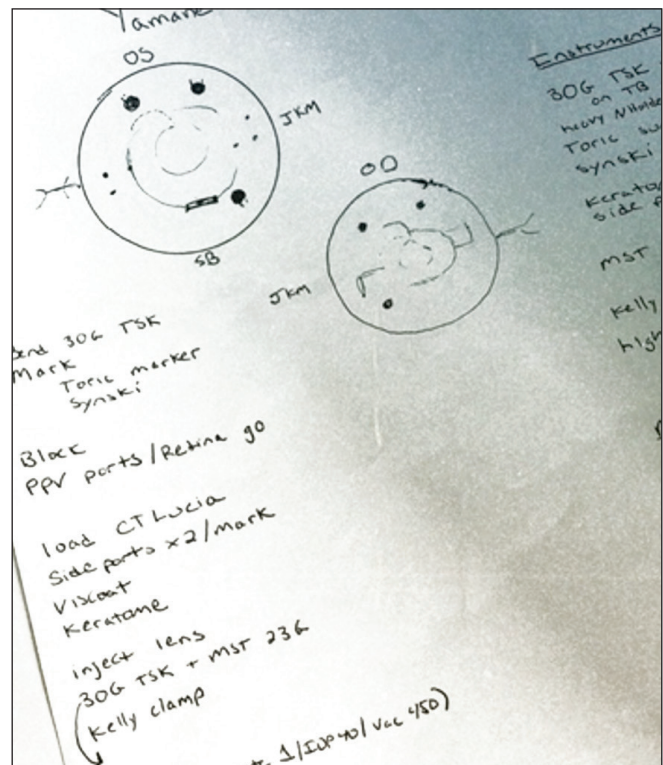 Yamane
OS
JKM
SB
OD
JKM
Bend 30G TSK
Mark
Toric marker
Synski
Block
PPV ports/Retina go
load CT Lucia
Side ports x2/mark
Viscoat
Keratome
inject lens
30G TSK + MST 23G
Kelly clamp
1/IOP 40/Vac 450)
Instruments
30G TSK
on TB
heavy N Holde
Toric
Synski
Kerato
side p
MST
Kelly
high